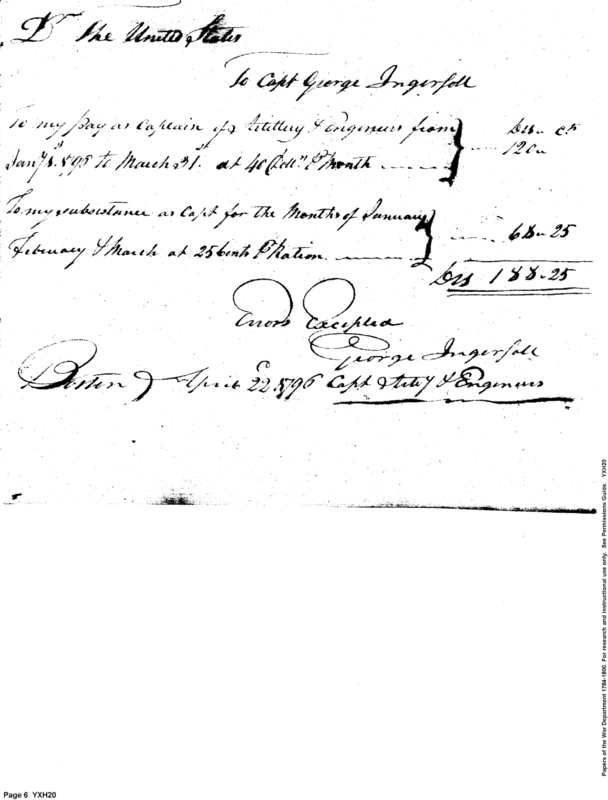 Dr The United States
To Capt George Ingersoll
To my pay as Captain of Artillery & Engineers from
Jany 1st 1796 to March 31st at 40 Dolls Pr Month
Drs Cts
120
To my subsistance as Capt for the Months of January
February & March at 25 Cents Pr Ration
68 25
Drs 188 25
Errors Excepted
George Ingersoll
Boston April 22d 1796 Capt Artily & Engineers
Page 6 YXH20
Papers of the War Department 1784-1800. For research and instructional use only. See Permissions Guide. YXH20